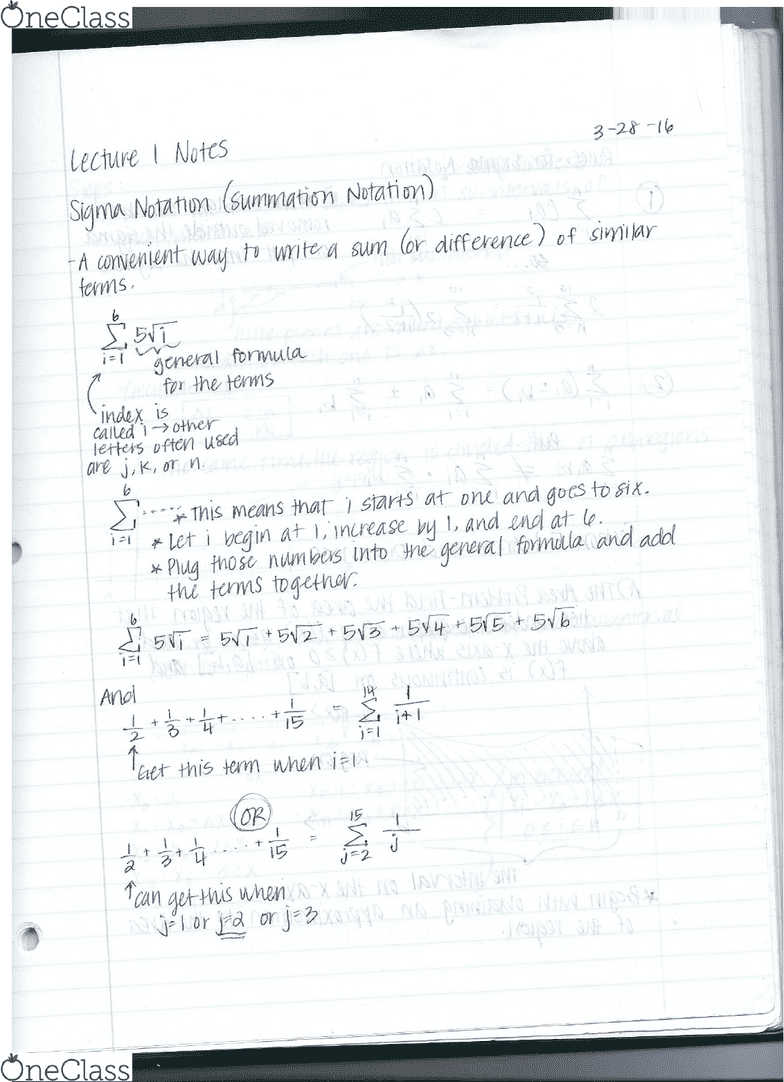 OneClass
3-28-16
Lecture 1 Notes
Sigma Notation (Summation Notation)
- A convenient way to write a sum (or difference) of similar
terms.
6
∑ 5√i
i=1
general formula
for the terms
index is
called i → other
letters often used
are j, k, or n.
6
∑ ----- * This means that i starts at one and goes to six.
i=1 * Let i begin at 1, increase by 1, and end at 6.
* Plug those numbers into the general formula and add
the terms together.
6
∑ 5√i = 5√1 + 5√2 + 5√3 + 5√4 + 5√5 + 5√6
i=1
And
1/2 + 1/3 + 1/4 + ..... + 1/15 = 14 ∑ i=1 1/i+1
↑ Get this term when i=1
OR
1/2 + 1/3 + 1/4 ..... + 1/15 = 15 ∑ j=2 1/j
↑ can get this when
j=1 or j=2 or j=3
OneClass